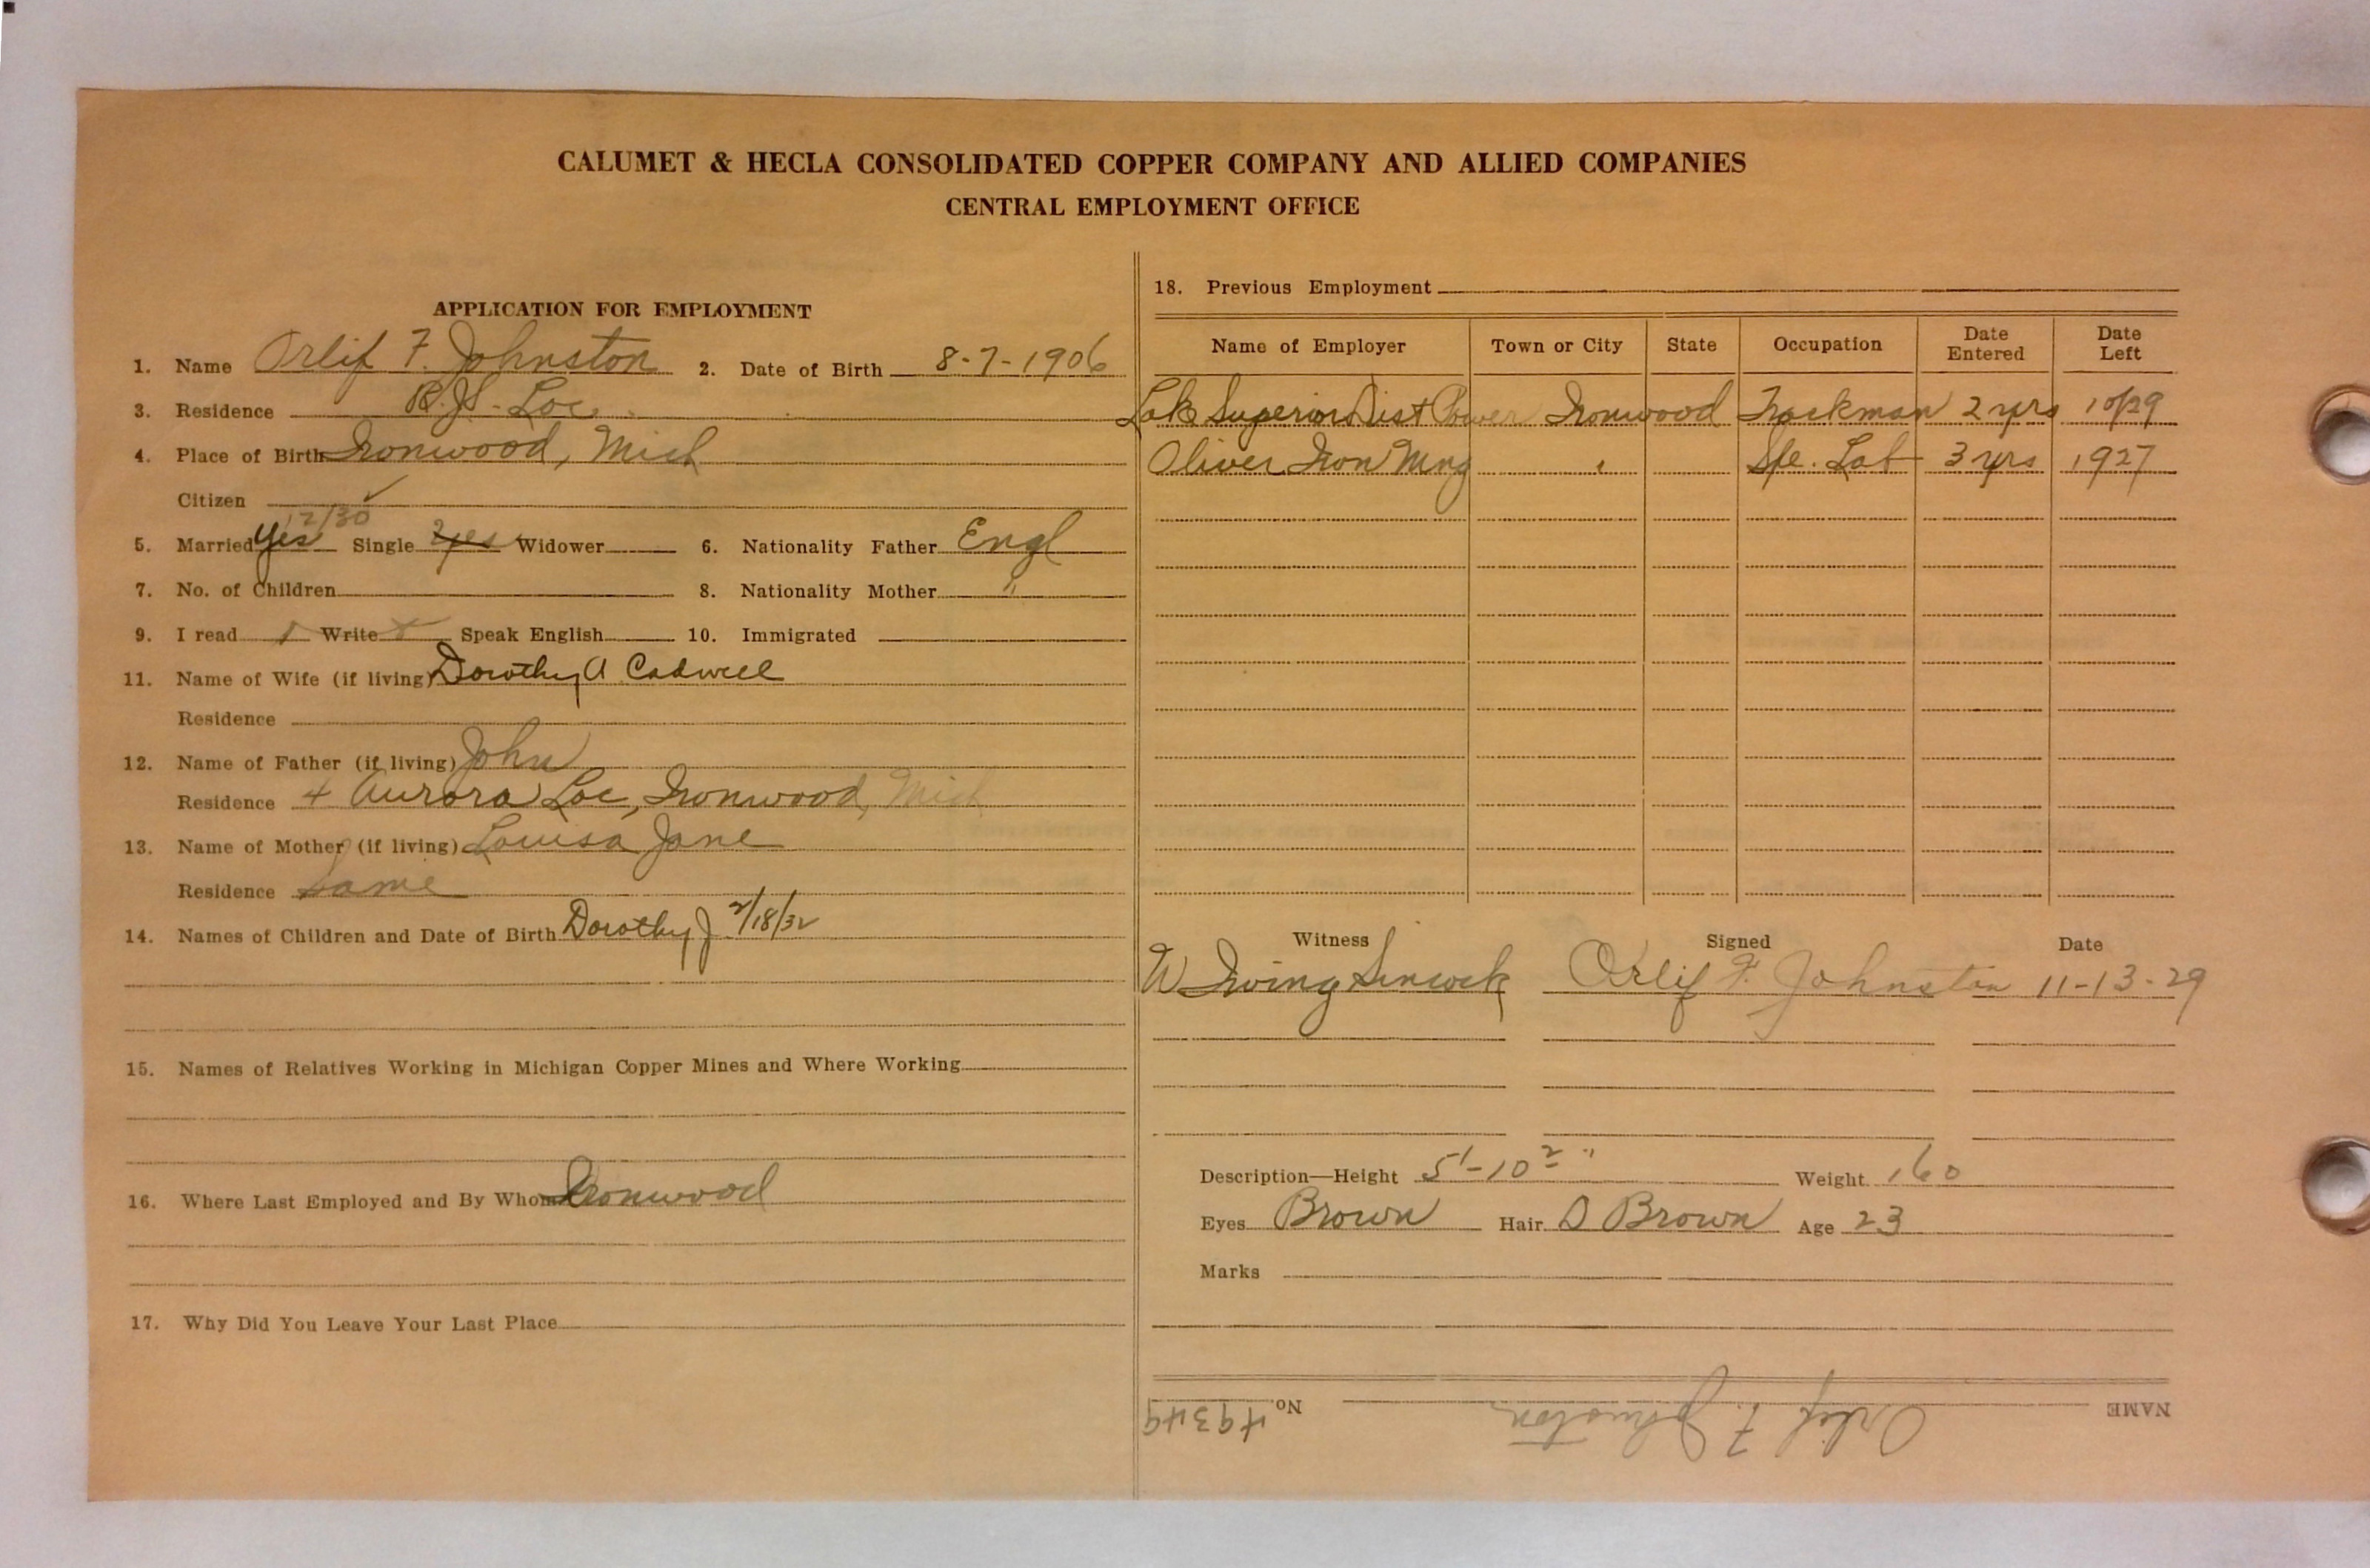 CALUMET & HECLA CONSOLIDATED COPPER COMPANY AND ALLIED COMPANIES
CENTRAL EMPLOYMENT OFFICE
APPLICATION FOR EMPLOYMENT
1. Name Orlif F. Johnston 2. Date of Birth 8-7-1906
3. Residence Loc.
4. Place of Birth Ironwood, Mich
Citizen ✓
12/30
5. Married Yes Single yes Widower 6. Nationality Father Engl
7. No. of Children 8. Nationality Mother "
9. I read Write Speak English 10. Immigrated
11. Name of Wife (if living) Dorothy A Cadwell
Residence
12. Name of Father (if living) John
Residence 4 Aurora Loc, Ironwood, Mich
13. Name of Mother (if living) Louisa Jane
Residence Same
14. Names of Children and Date of Birth Dorothy J 2/18/32
15. Names of Relatives Working in Michigan Copper Mines and Where Working
16. Where Last Employed and By Whom Ironwood
17. Why Did You Leave Your Last Place
18. Previous Employment
Name of Employer Town or City State Occupation Date Entered Date Left
Lake Superior Dist Power Ironwood Trackman 2 yrs 10/29
Oliver Iron Mng " Lab 3 yrs 1927
Witness Signed Date
W Irving Orlif F. Johnston 11-13-29
Description—Height 5'-10 2" Weight 160
Eyes Brown Hair D Brown Age 23
Marks
NAME Orlif F. Johnston No. 49349